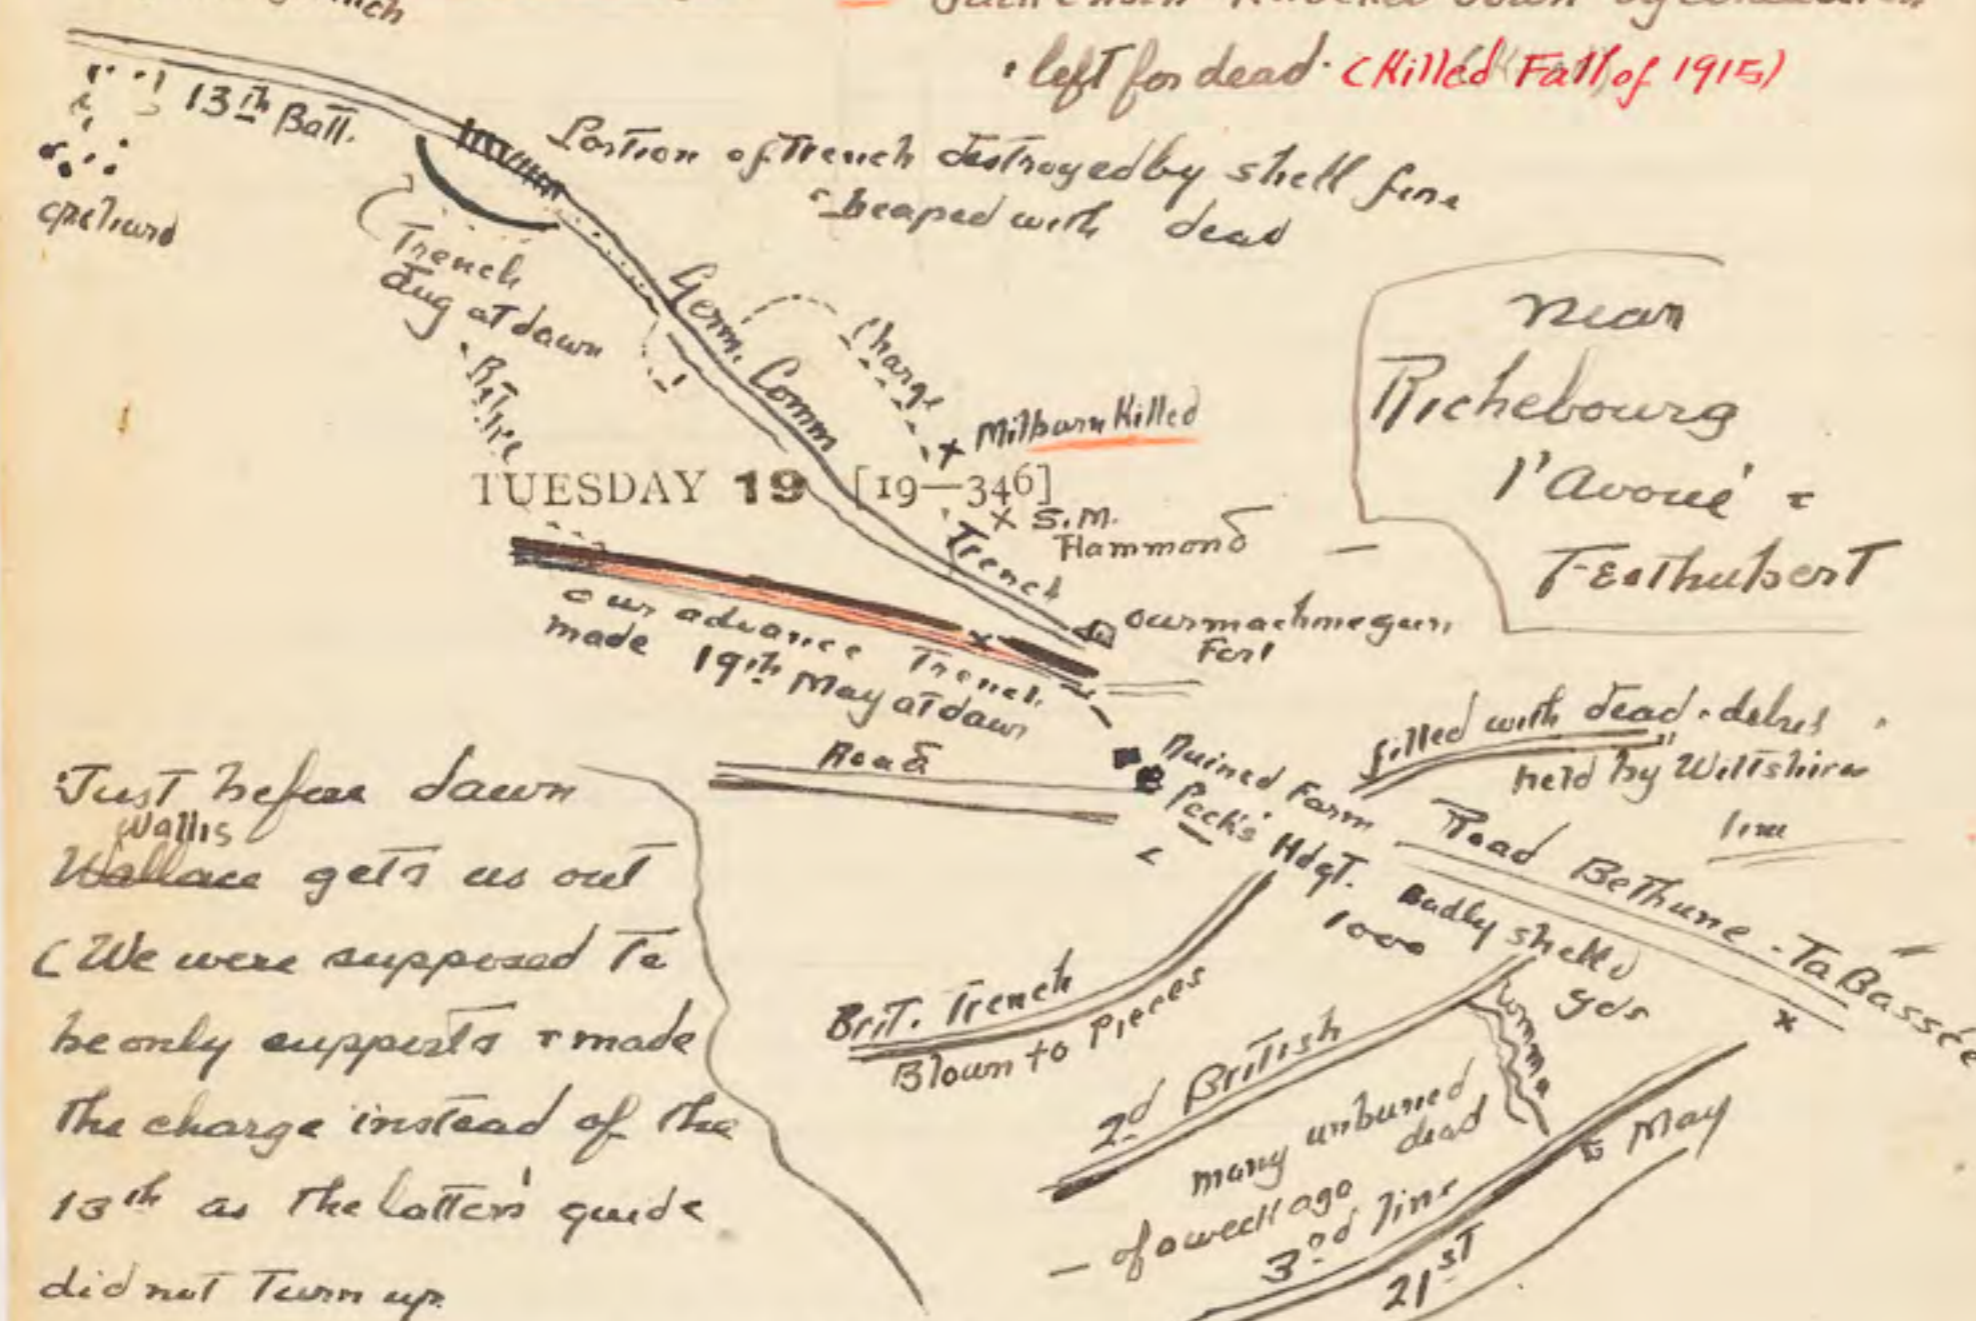 knocked down by concussion
left for dead. (Killed Fall of 1915)
13th Batt.
Portion of Trench destroyed by shell fire
heaped with dead
orchard
Trench
dug at dawn
Retire
Germ. Comm
Trench
Charge
Milburn Killed
TUESDAY 19 [19—346]
S.M.
Hammond
near
Richebourg
l'Avoué &
Festhubert
our machine gun
Fort
our advance Trench
made 19th May at dawn
Road
Ruined Farm
Peck's Hdqt.
filled with dead & debris
held by Wiltshires
line
Road Bethune - La Bassée
Badly shelled
1000 yds
Brit. Trench
Blown to Pieces
2d British
many unburied
dead
of a week ago
3rd line
21st May
Just before dawn
Wallis
Wallace gets us out
(We were supposed to
be only supports & made
the charge instead of the
13th as the latter's guide
did not turn up.